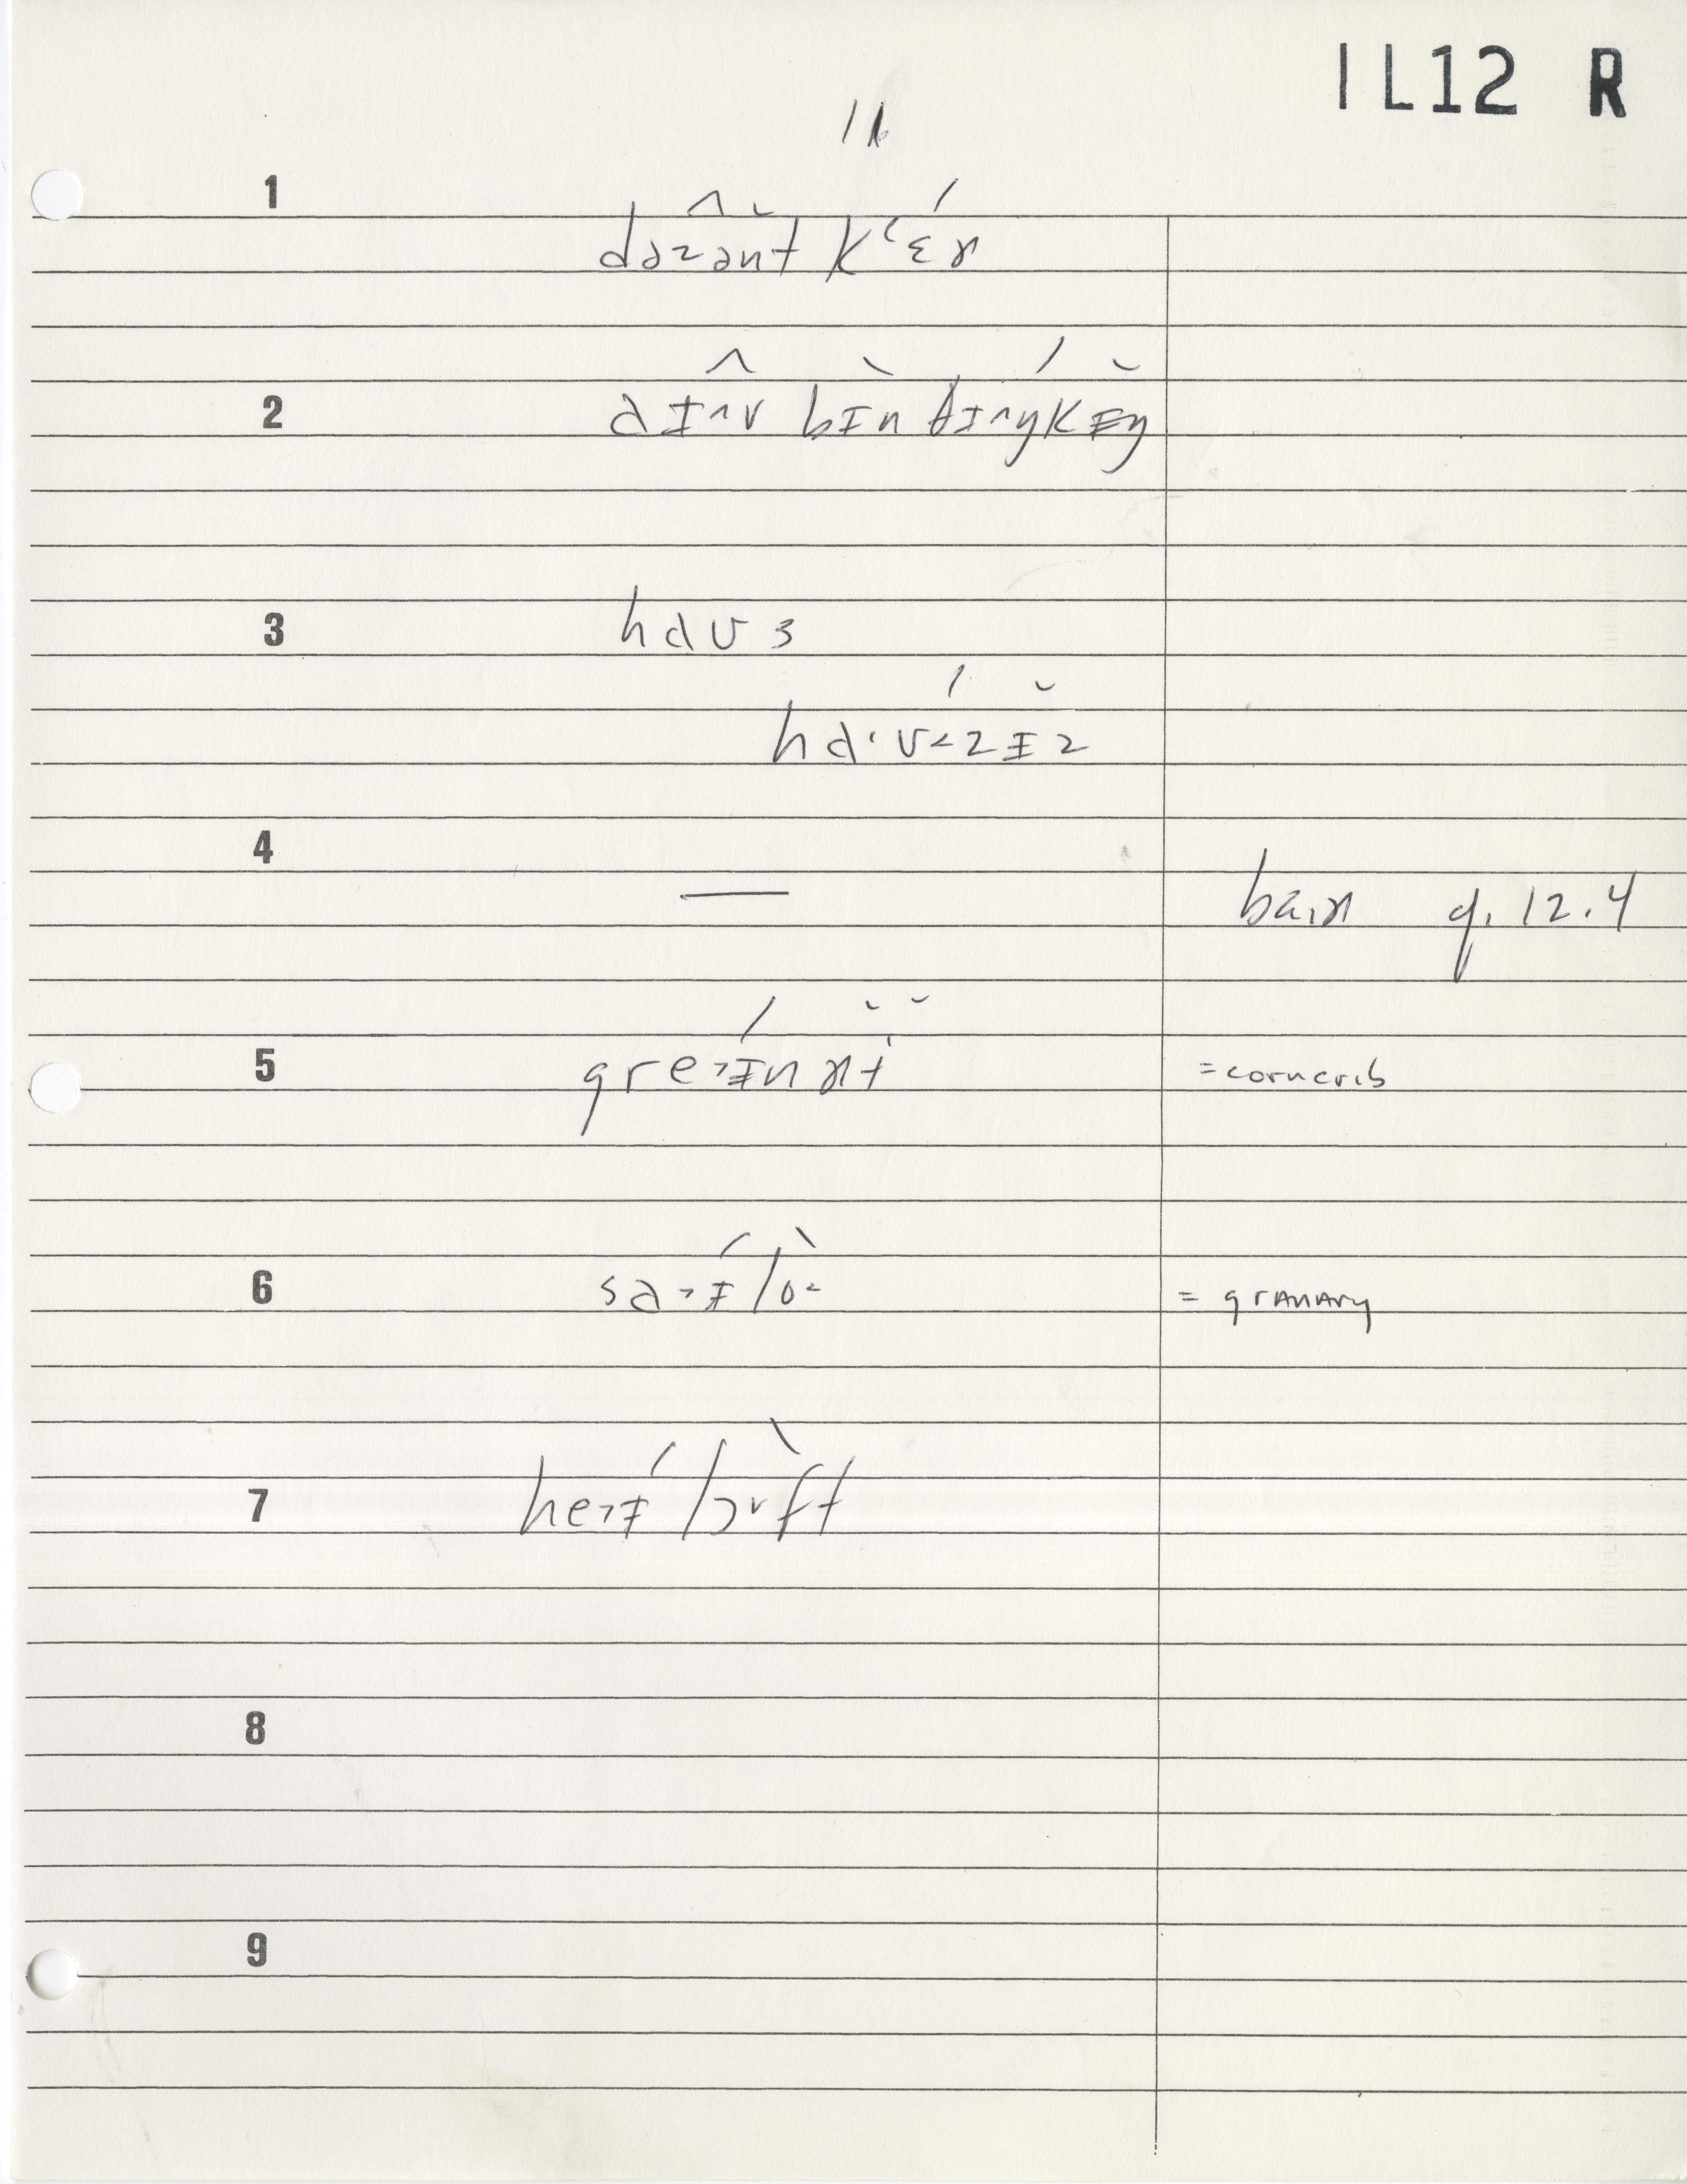 1L12 R
11
1
dəzənt kʻɛɚ
2
aɪ^v bɪn θɪ^ŋkɪŋ
3
haʊs
ha·ʊ<zɪz
4
—
baɚn cf. 12.4
5
gre>ɪnɚi
= corncrib
6
sa>ɪlo
= granary
7
he>ɪ lɔft
8
9